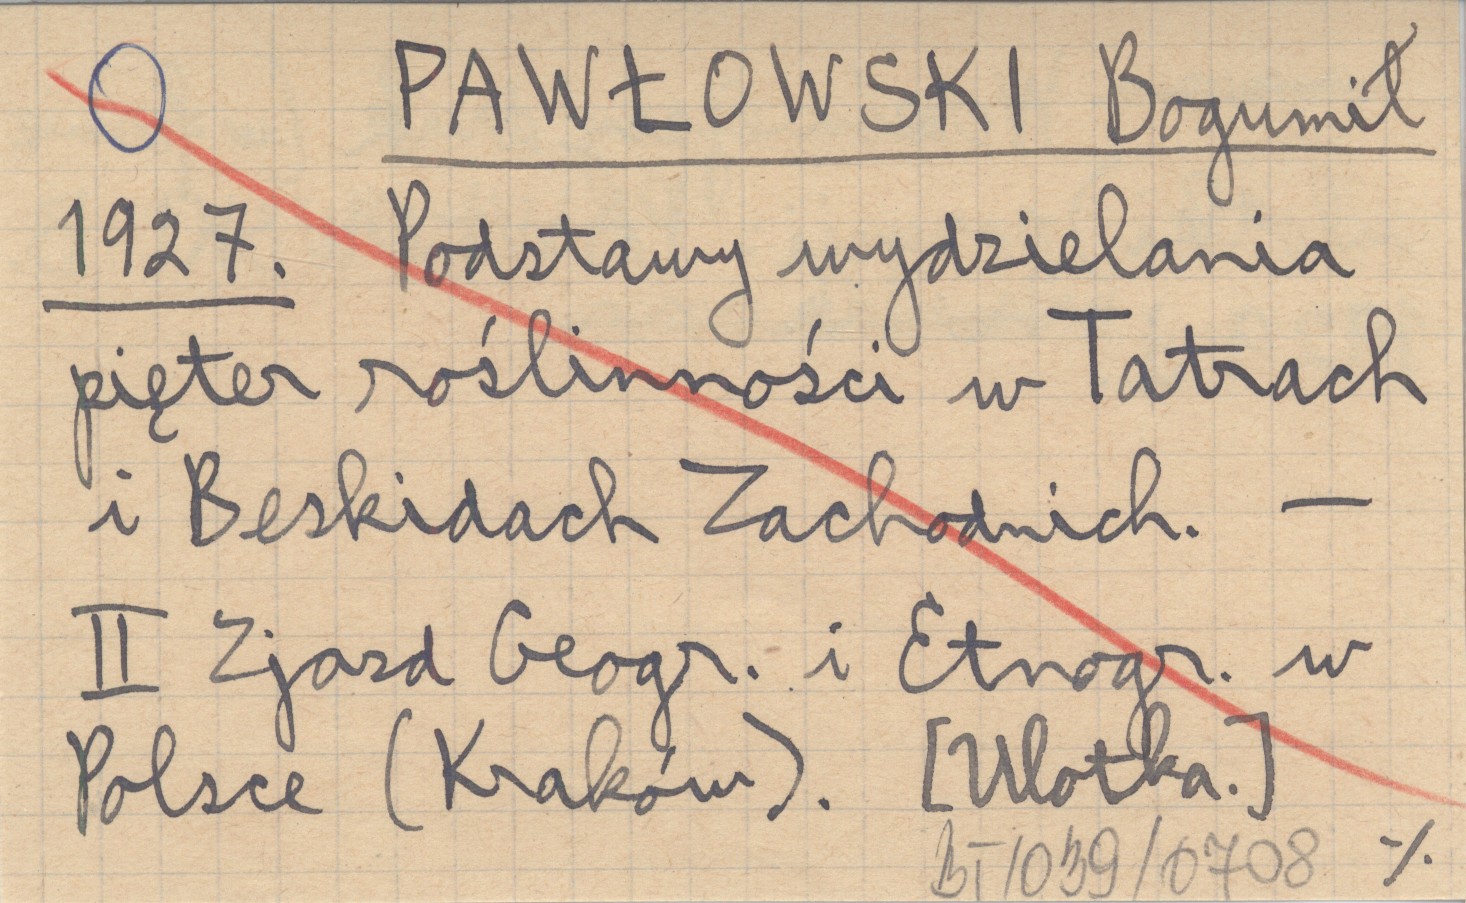 PAWŁOWSKI Bogumił
1927. Podstawy wydzielania
pięter roślinności w Tatrach
i Beskidach Zachodnich. —
II Zjazd Geogr. i Etnogr. w
Polsce (Kraków). [Ulotka.]
BT/039/0708 ·/.